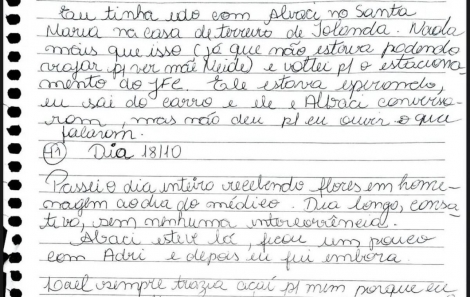 Eu tinha ido com Abraci no Santa
Maria na casa de terreiro de Iolanda. Nada
mais que isso (já que não estava podendo
viajar p/ ver mãe Neide) e voltei p/ o estaciona
mento do JFC. Ele estava esperando,
eu saí do carro e ele e Albaci conversa-
ram, mas não deu p/ eu ouvir o que
falaram.
Dia 18/10
Passei o dia inteiro recebendo flores em home-
nagem ao dia do médico. Dia longo, cansa
tivo, sem nenhuma intercorrência.
Abaci esteve lá, ficou um pouco
com Adri e depois eu fui embora.
Lael sempre trazia açaí p/ mim porque eu